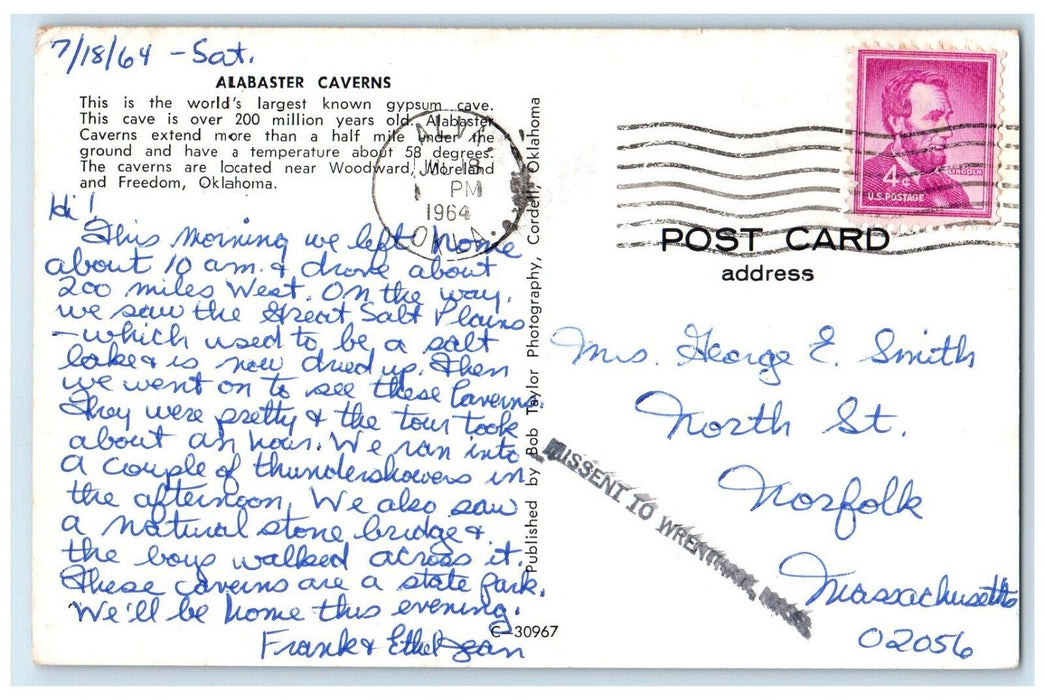 7/18/64 - Sat.
ALABASTER CAVERNS
This is the world's largest known gypsum cave.
This cave is over 200 million years old. Alabaster
Caverns extend more than a half mile under the
ground and have a temperature about 58 degrees.
The caverns are located near Woodward, Moreland
and Freedom, Oklahoma.
Hi!
This morning we left home
about 10 am. & drove about
200 miles West. On the way,
we saw the Great Salt Plains
- which used to be a salt
lake & is now dried up. Then
we went on to see these Caverns.
They were pretty & the tour took
about an hour. We ran into
a couple of thundershowers in
the afternoon. We also saw
a natural stone bridge &
the boys walked across it.
These caverns are a state park.
We'll be home this evening.
Frank & Ethel Jean
C-30967
Published by Bob Taylor Photography, Cordell, Oklahoma
ALVA
JUL 18
PM
1964
OKLA.
4¢
LINCOLN
U.S. POSTAGE
POST CARD
address
Mrs. George E. Smith
North St.
Norfolk
Massachusetts
02056
MISSENT TO WRENTHAM, MASS.